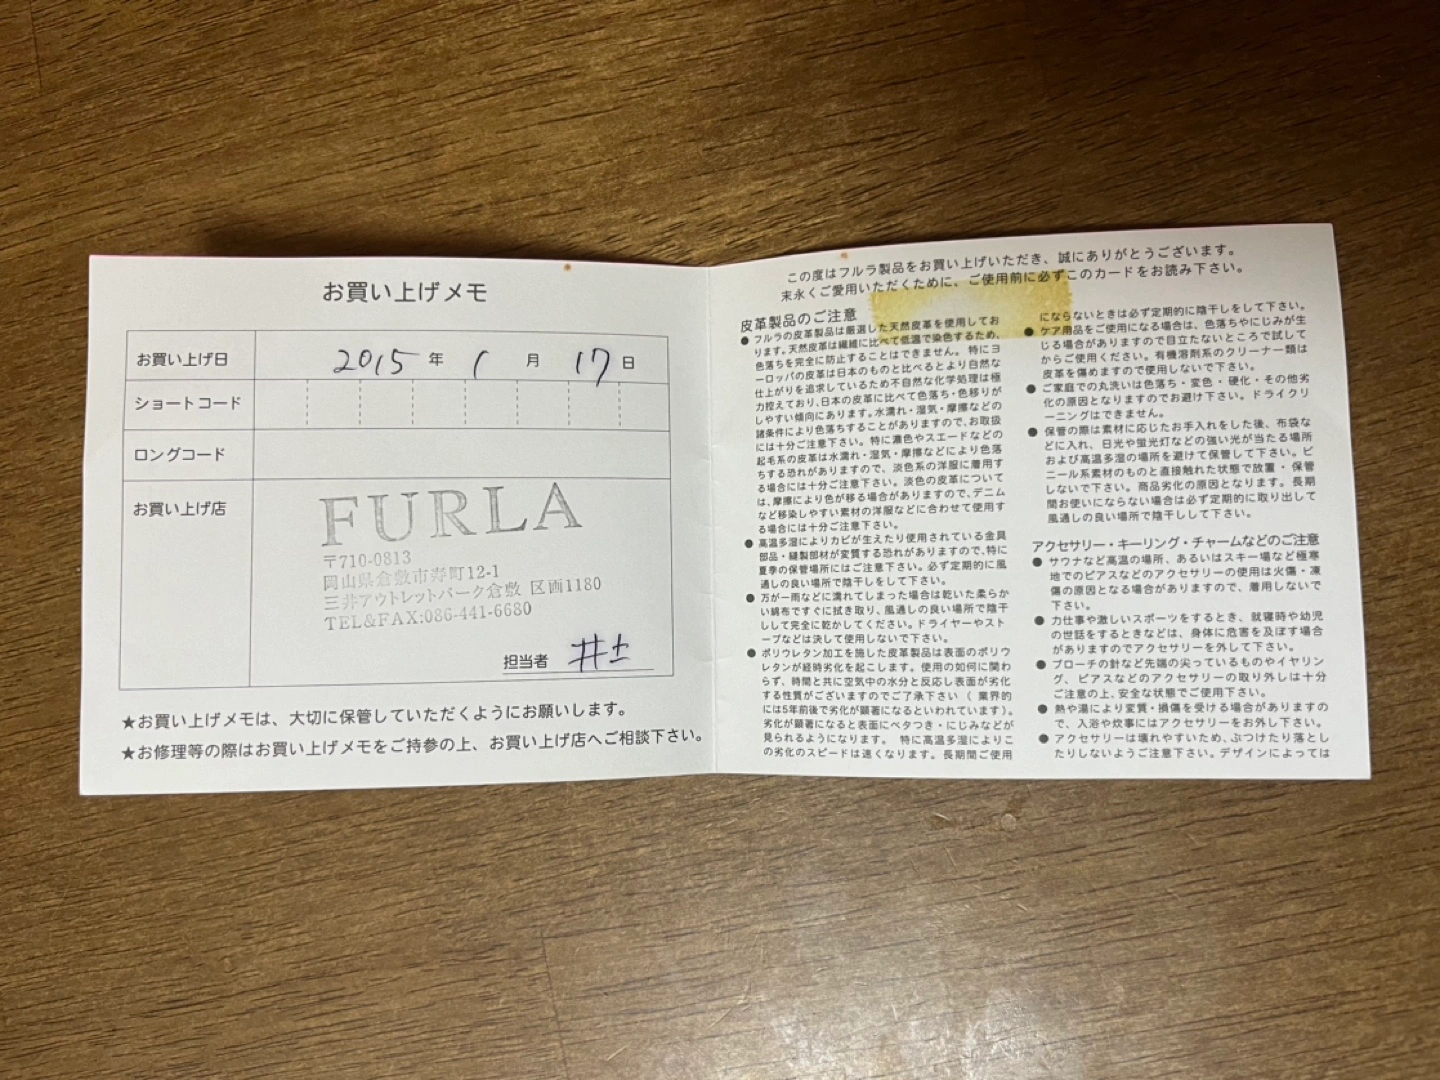 お買い上げメモ
お買い上げ日 2015 年 1 月 17 日
ショートコード
ロングコード
お買い上げ店
FURLA
〒710-0813
岡山県倉敷市寿町12-1
三井アウトレットパーク倉敷 区画1180
TEL&FAX:086-441-6680
担当者 井土
★お買い上げメモは、大切に保管していただくようにお願いします。
★お修理等の際はお買い上げメモをご持参の上、お買い上げ店へご相談下さい。
この度はフルラ製品をお買い上げいただき、誠にありがとうございます。
末永くご愛用いただくために、ご使用前に必ずこのカードをお読み下さい。
皮革製品のご注意
● フルラの皮革製品は厳選した天然皮革を使用してお
ります。天然皮革は繊維に比べて低温で染色するため、
色落ちを完全に防止することはできません。特にヨ
ーロッパの皮革は日本のものと比べるとより自然な
仕上がりを追求しているため不自然な化学処理は極
力控えており、日本の皮革に比べて色落ち・色移りが
しやすい傾向にあります。水濡れ・湿気・摩擦などの
諸条件により色落ちすることがありますので、お取扱
には十分ご注意下さい。特に濃色やスエードなどの
起毛系の皮革は水濡れ・湿気・摩擦などにより色落
ちする恐れがありますので、淡色系の洋服に着用す
る場合には十分ご注意下さい。淡色の皮革について
は、摩擦により色が移る場合がありますので、デニム
など移染しやすい素材の洋服などに合わせて使用す
る場合には十分ご注意下さい。
● 高温多湿によりカビが生えたり使用されている金具
部品・縫製部材が変質する恐れがありますので、特に
夏季の保管場所にはご注意下さい。必ず定期的に風
通しの良い場所で陰干しをして下さい。
● 万が一雨などに濡れてしまった場合は乾いた柔らか
い綿布ですぐに拭き取り、風通しの良い場所で陰干
しして完全に乾かしてください。ドライヤーやスト
ーブなどは決して使用しないで下さい。
● ポリウレタン加工を施した皮革製品は表面のポリウ
レタンが経時劣化を起こします。使用の如何に関わ
らず、時間と共に空気中の水分と反応し表面が劣化
する性質がございますのでご了承下さい（業界的
には5年前後で劣化が顕著になるといわれています）。
劣化が顕著になると表面にベタつき・にじみなどが
見られるようになります。 特に高温多湿によりこ
の劣化のスピードは速くなります。長期間ご使用
にならないときは必ず定期的に陰干しをして下さい。
● ケア用品をご使用になる場合は、色落ちやにじみが生
じる場合がありますので目立たないところで試して
からご使用ください。有機溶剤系のクリーナー類は
皮革を傷めますので使用しないで下さい。
● ご家庭での丸洗いは色落ち・変色・硬化・その他劣
化の原因となりますのでお避け下さい。ドライクリ
ーニングはできません。
● 保管の際は素材に応じたお手入れをした後、布袋な
どに入れ、日光や蛍光灯などの強い光が当たる場所
および高温多湿の場所を避けて保管して下さい。ビ
ニール系素材のものと直接触れた状態で放置・保管
しないで下さい。商品劣化の原因となります。長期
間お使いにならない場合は必ず定期的に取り出して
風通しの良い場所で陰干しして下さい。
アクセサリー・キーリング・チャームなどのご注意
● サウナなど高温の場所、あるいはスキー場など極寒
地でのピアスなどのアクセサリーの使用は火傷・凍
傷の原因となる場合がありますので、着用しないで
下さい。
● 力仕事や激しいスポーツをするとき、就寝時や幼児
の世話をするときなどは、身体に危害を及ぼす場合
がありますのでアクセサリーを外して下さい。
● ブローチの針など先端の尖っているものやイヤリン
グ、ピアスなどのアクセサリーの取り外しは十分
ご注意の上、安全な状態でご使用下さい。
● 熱や湯により変質・損傷を受ける場合がありますの
で、入浴や炊事にはアクセサリーをお外し下さい。
● アクセサリーは壊れやすいため、ぶつけたり落とし
たりしないようご注意下さい。デザインによっては